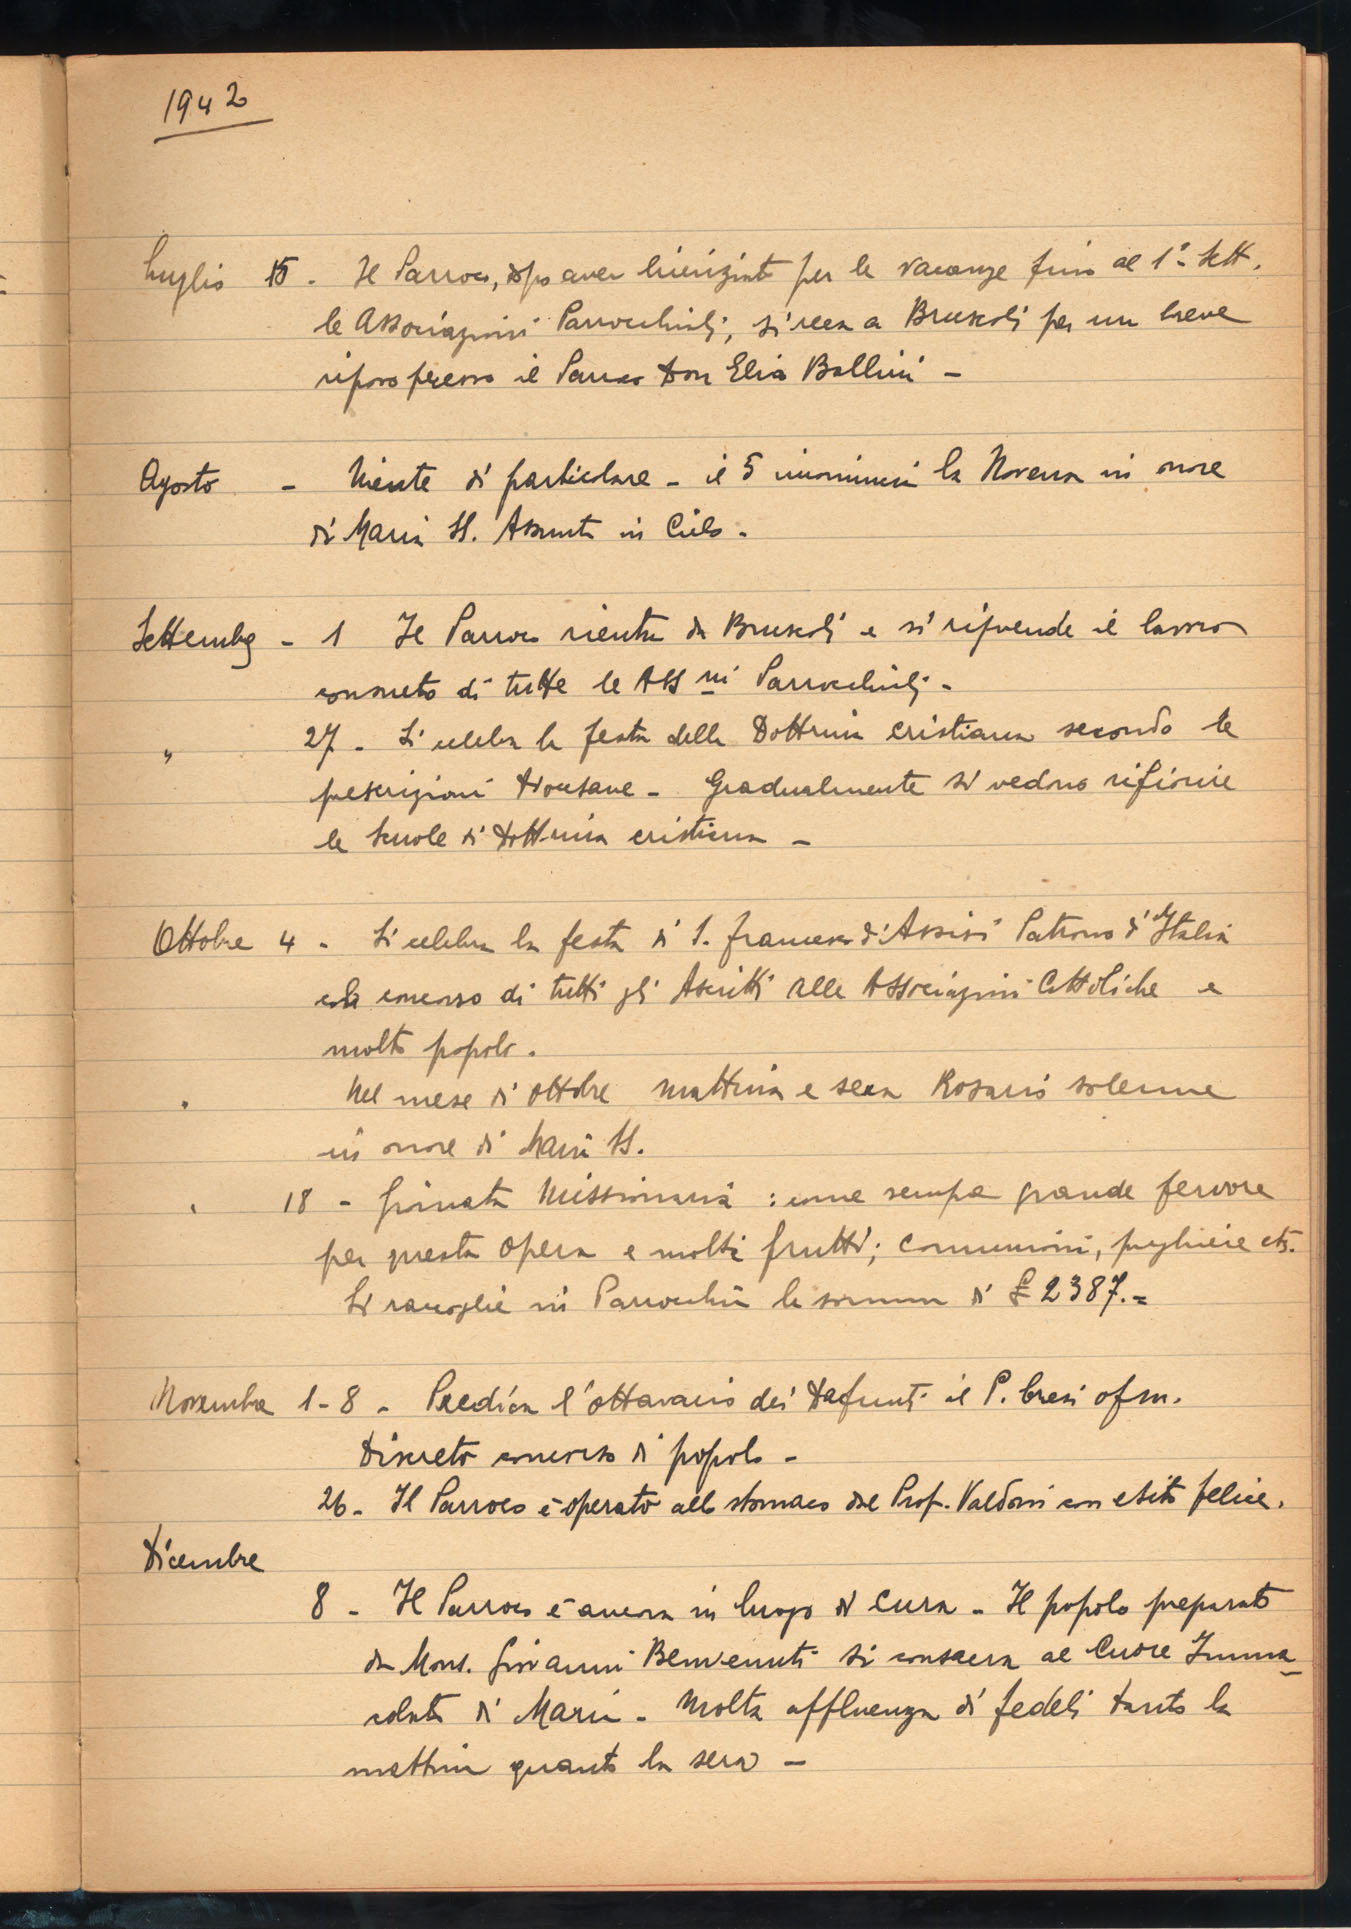 1942
Luglio 15 - Il Parroco, dopo aver licenziato per le vacanze fino al 1° Sett.
le Associazioni Parrocchiali, si reca a Bruscoli per un breve
riposo presso il Parroco Don Elio Ballini -
Agosto - Niente di particolare - il 5 incominciò la Novena in onore
di Maria SS. Assunta in Cielo -
Settembre - 1 Il Parroco rientra da Bruscoli e si riprende il lavoro
consueto di tutte le Ass.ni Parrocchiali -
" 27 - Si celebra la festa della Dottrina Cristiana secondo le
prescrizioni Diocesane - Gradualmente si vedono rifiorire
le Scuole di Dottrina cristiana -
Ottobre 4 - Si celebra la festa di S. Francesco d'Assisi Patrono d'Italia
col concorso di tutti gli Ascritti alle Associazioni Cattoliche e
molto popolo.
" Nel mese di Ottobre mattina e sera Rosario solenne
in onore di Maria SS.
" 18 - Giornata Missionaria : come sempre grande fervore
per questa Opera e molti frutti; Comunioni, preghiere etc.
Si raccoglie in Parrocchia la somma di £ 2387.=
Novembre 1-8 - Predica l'ottavario dei Defunti il P. Cresi ofm.
Discreto concorso di popolo -
26 - Il Parroco è operato allo stomaco dal Prof. Valdoni con esito felice.
Dicembre
8 - Il Parroco è ancora in luogo di cura - Il popolo preparato
da Mons. Giovanni Benvenuti si consacra al Cuore Imma_
colato di Maria - Molta affluenza di fedeli tanto la
mattina quanto la sera -